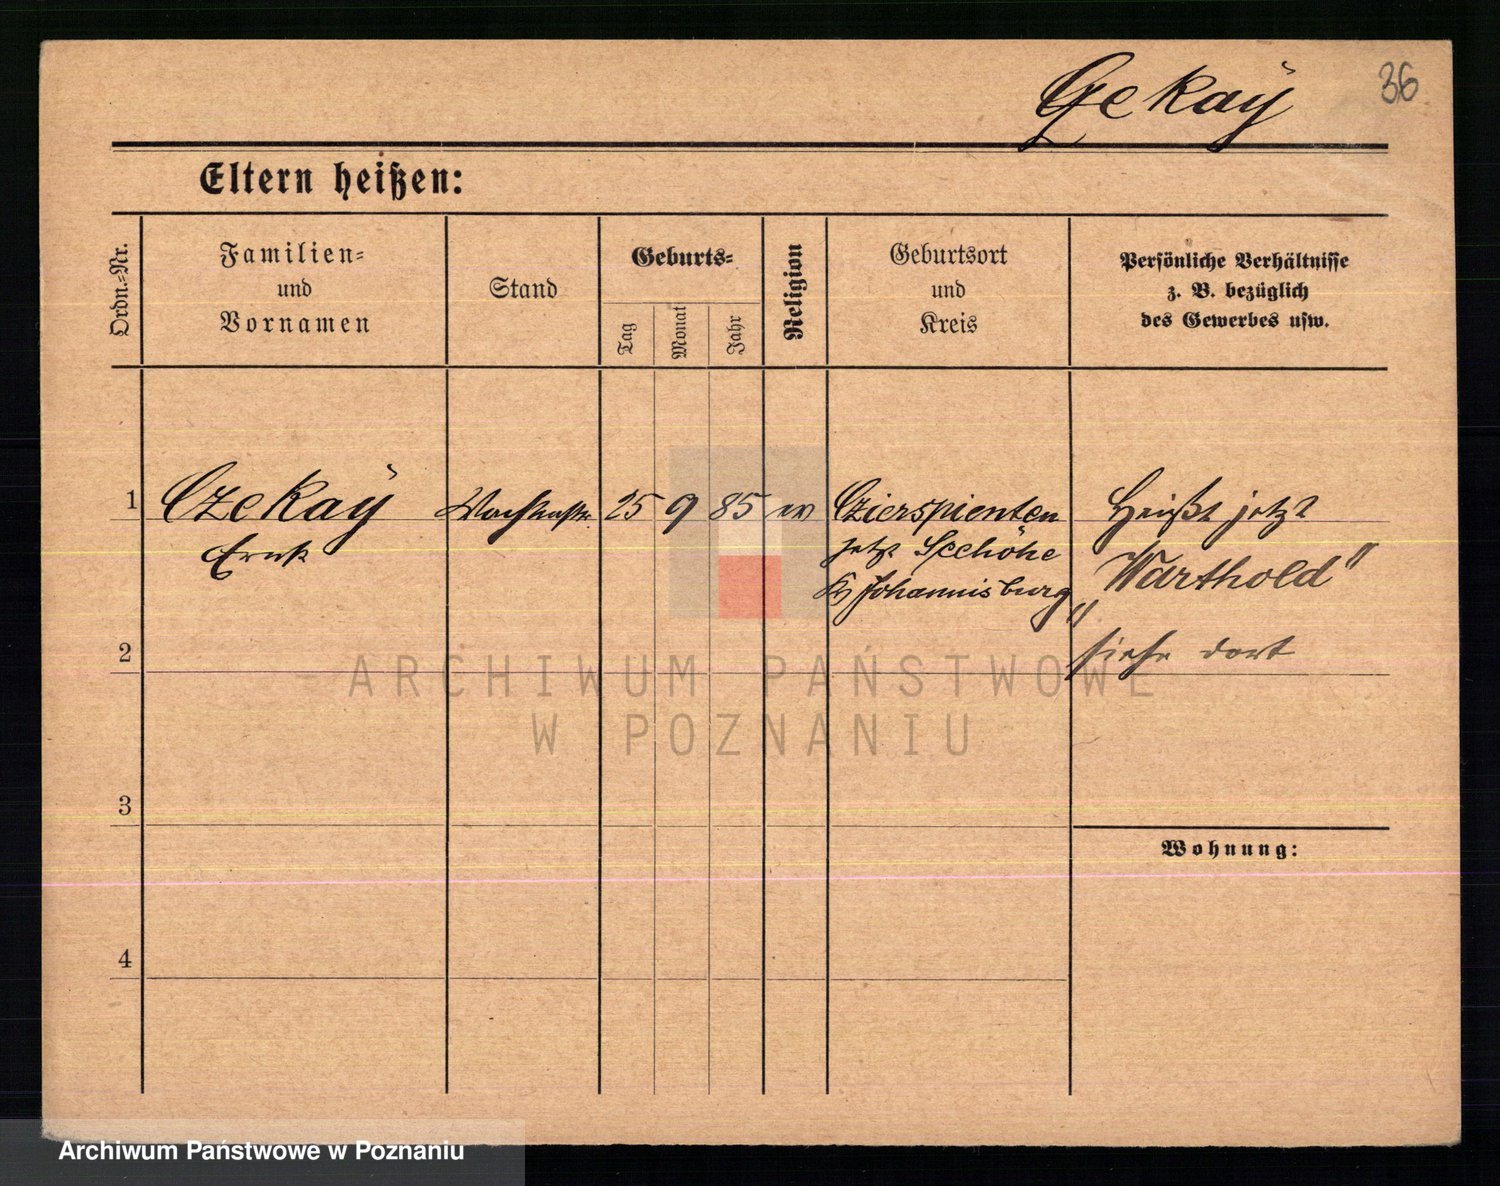 Czekaÿ
36
Eltern heißen:
Ordn.-Nr.
Familien-
und
Vornamen
Stand
Geburts-
Tag
Monat
Jahr
Religion
Geburtsort
und
Kreis
Persönliche Verhältnisse
z. B. bezüglich
des Gewerbes usw.
1
Czekaÿ
Ernst
25
9
85
ev
Czierspienten
jetzt Seehöhe
Kr Johannisburg
Heißt jetzt
„Warthold"
siehe dort
2
3
4
Wohnung:
ARCHIWUM PAŃSTWOWE
W POZNANIU
Archiwum Państwowe w Poznaniu